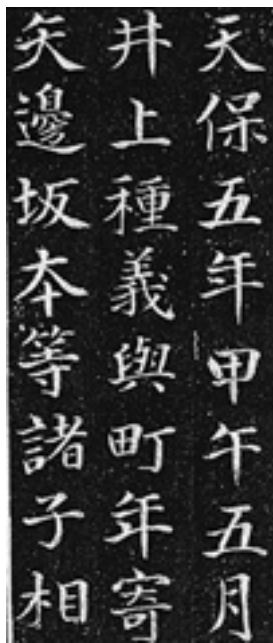 天保五年甲午五月
井上種義與町年寄
矢邊坂本等諸子相